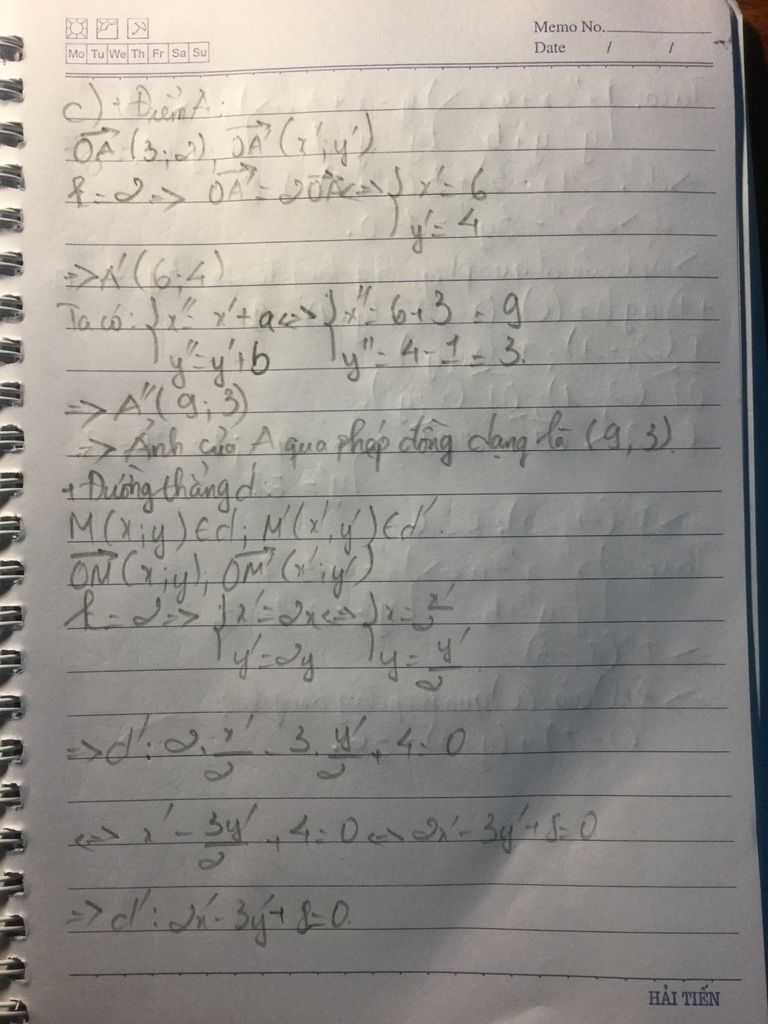 Memo No.
Mo Tu We Th Fr Sa Su
Date / /
c) + Điểm A:
OA→ (3; 2), OA'→ (x'; y')
k = 2 => OA'→ = 2OA→ <=> { x' = 6
y' = 4
=> A' (6; 4)
Ta có: { x'' = x' + a <=> { x'' = 6 + 3 = 9
y'' = y' + b y'' = 4 - 1 = 3.
=> A'' (9; 3)
=> Ảnh của A qua phép đồng dạng là (9, 3)
+ Đường thẳng d:
M (x; y) ∈ d; M' (x', y') ∈ d'.
OM→ (x; y), OM'→ (x'; y')
k = 2 => { x' = 2x <=> { x = x'/2
y' = 2y y = y'/2
=> d': 2. x'/2 - 3. y'/2 + 4 = 0
<=> x' - 3y'/2 + 4 = 0 <=> 2x' - 3y' + 8 = 0
=> d': 2x' - 3y' + 8 = 0.
HẢI TIẾN